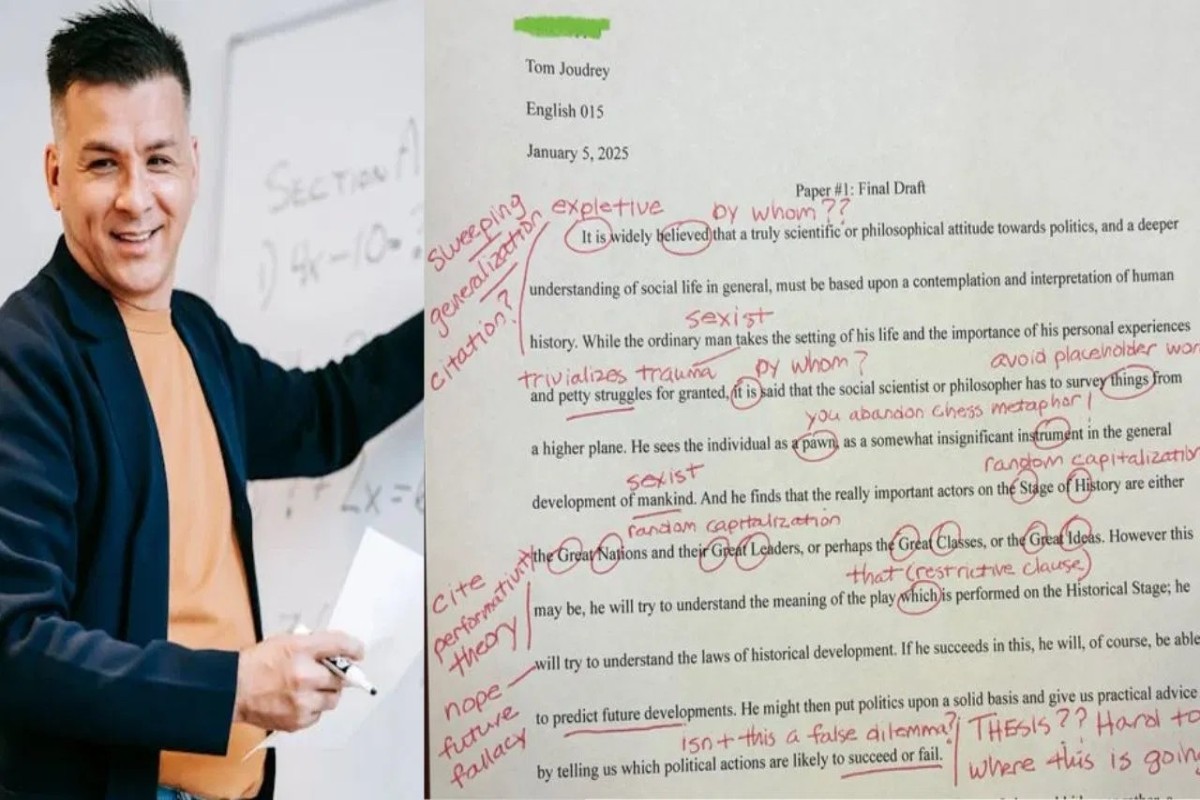 SECTION A
1) 4x-10=
2x=
Tom Joudrey
English 015
January 5, 2025
Paper #1: Final Draft
sweeping
generalization
citation?
expletive
by whom??
It is widely believed that a truly scientific or philosophical attitude towards politics, and a deeper
understanding of social life in general, must be based upon a contemplation and interpretation of human
sexist
history. While the ordinary man takes the setting of his life and the importance of his personal experiences
trivializes trauma
by whom?
avoid placeholder wor
and petty struggles for granted, it is said that the social scientist or philosopher has to survey things from
you abandon chess metaphor!
a higher plane. He sees the individual as a pawn, as a somewhat insignificant instrument in the general
sexist
random capitalization
development of mankind. And he finds that the really important actors on the Stage of History are either
random capitalization
the Great Nations and their Great Leaders, or perhaps the Great Classes, or the Great Ideas. However this
cite
performativity
theory
that (restrictive clause)
may be, he will try to understand the meaning of the play which is performed on the Historical Stage; he
will try to understand the laws of historical development. If he succeeds in this, he will, of course, be able
nope
future
fallacy
to predict future developments. He might then put politics upon a solid basis and give us practical advice
isn't this a false dilemma?
THESIS?? Hard to
where this is goin
by telling us which political actions are likely to succeed or fail.